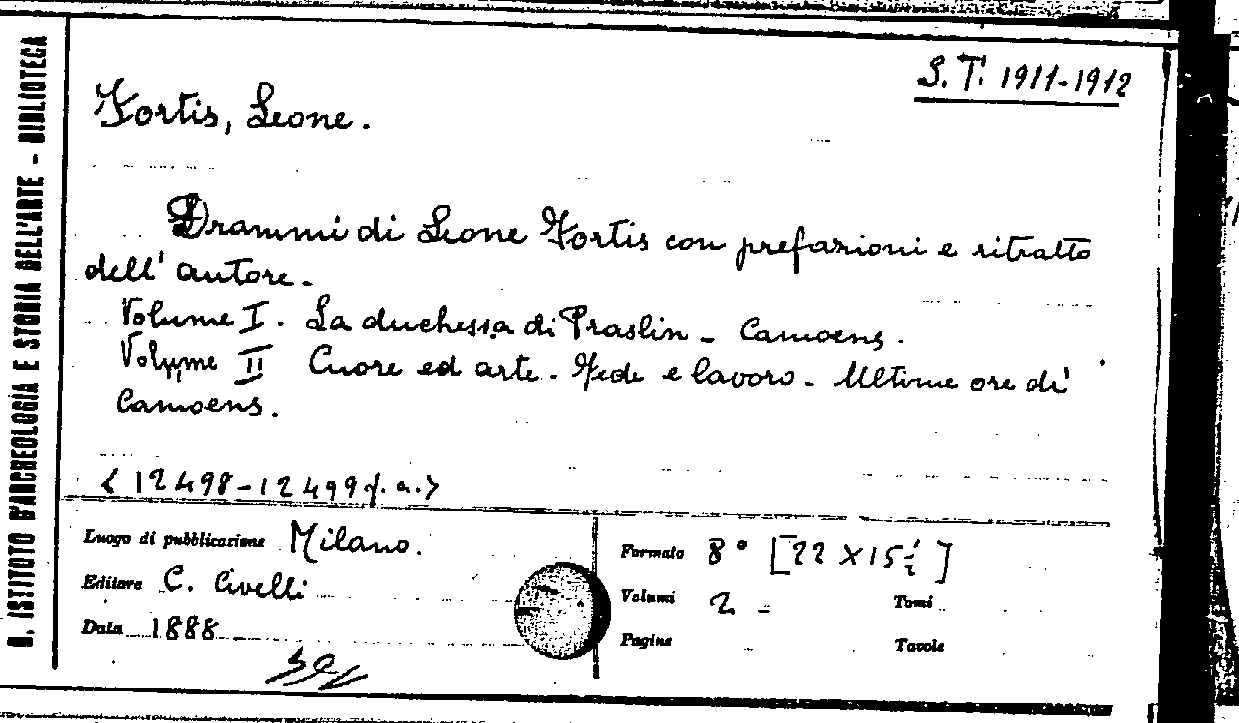 R. ISTITUTO D'ARCHEOLOGIA E STORIA DELL'ARTE - BIBLIOTECA
S. T. 1911-1912
Fortis, Leone.
Drammi di Leone Fortis con prefazioni e ritratto
dell' autore.
Volume I. La duchessa di Praslin - Camoens.
Volume II Cuore ed arte. Fede e lavoro - Ultime ore di
Camoens.
<12498-12499 f.a.>
Luogo di pubblicazione Milano.
Editore C. Civelli
Data 1888
Formato 8° [22 X 15½]
Volumi 2 - Tomi
Pagine Tavole